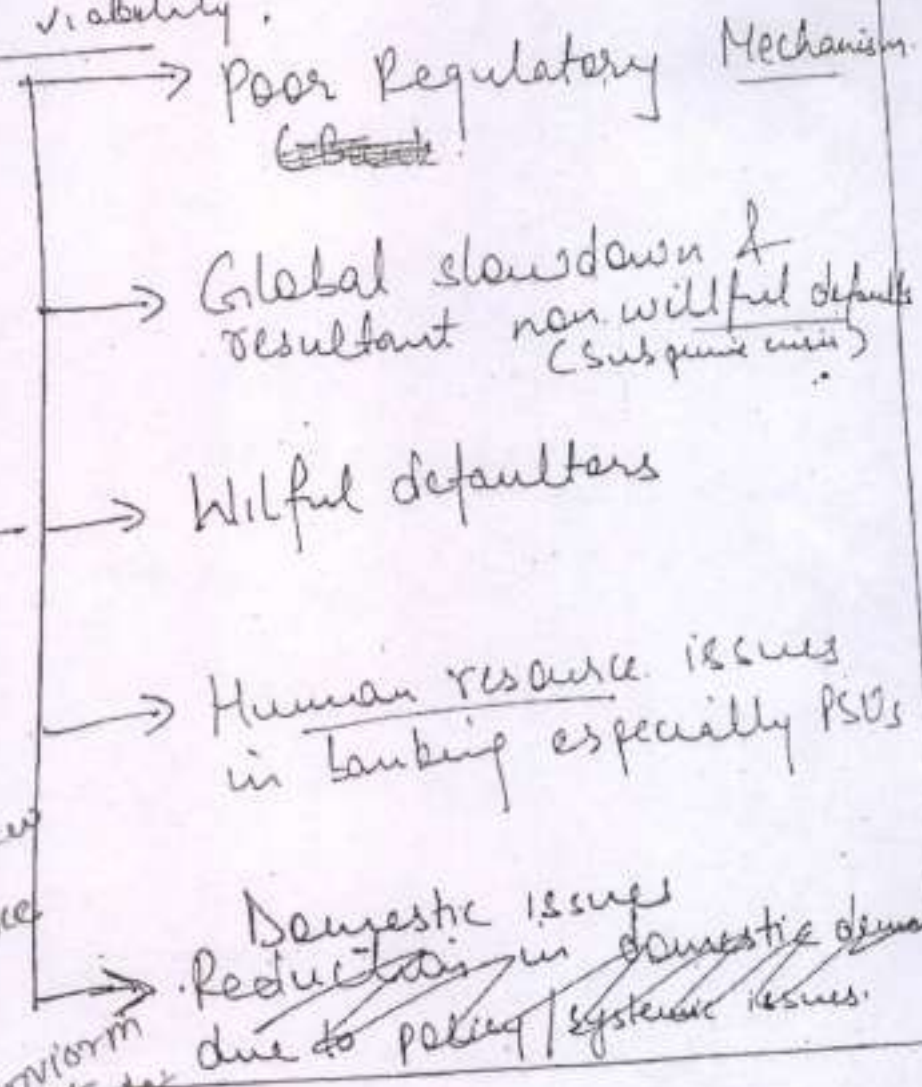 viability.
Poor Regulatory Mechanism
Global slowdown &
resultant non willful defaults
(Subprime crisis)
Wilful defaulters
Human resource issues
in banking especially PSUs
Domestic issues
Reduction in domestic
due to policy / systemic issues.